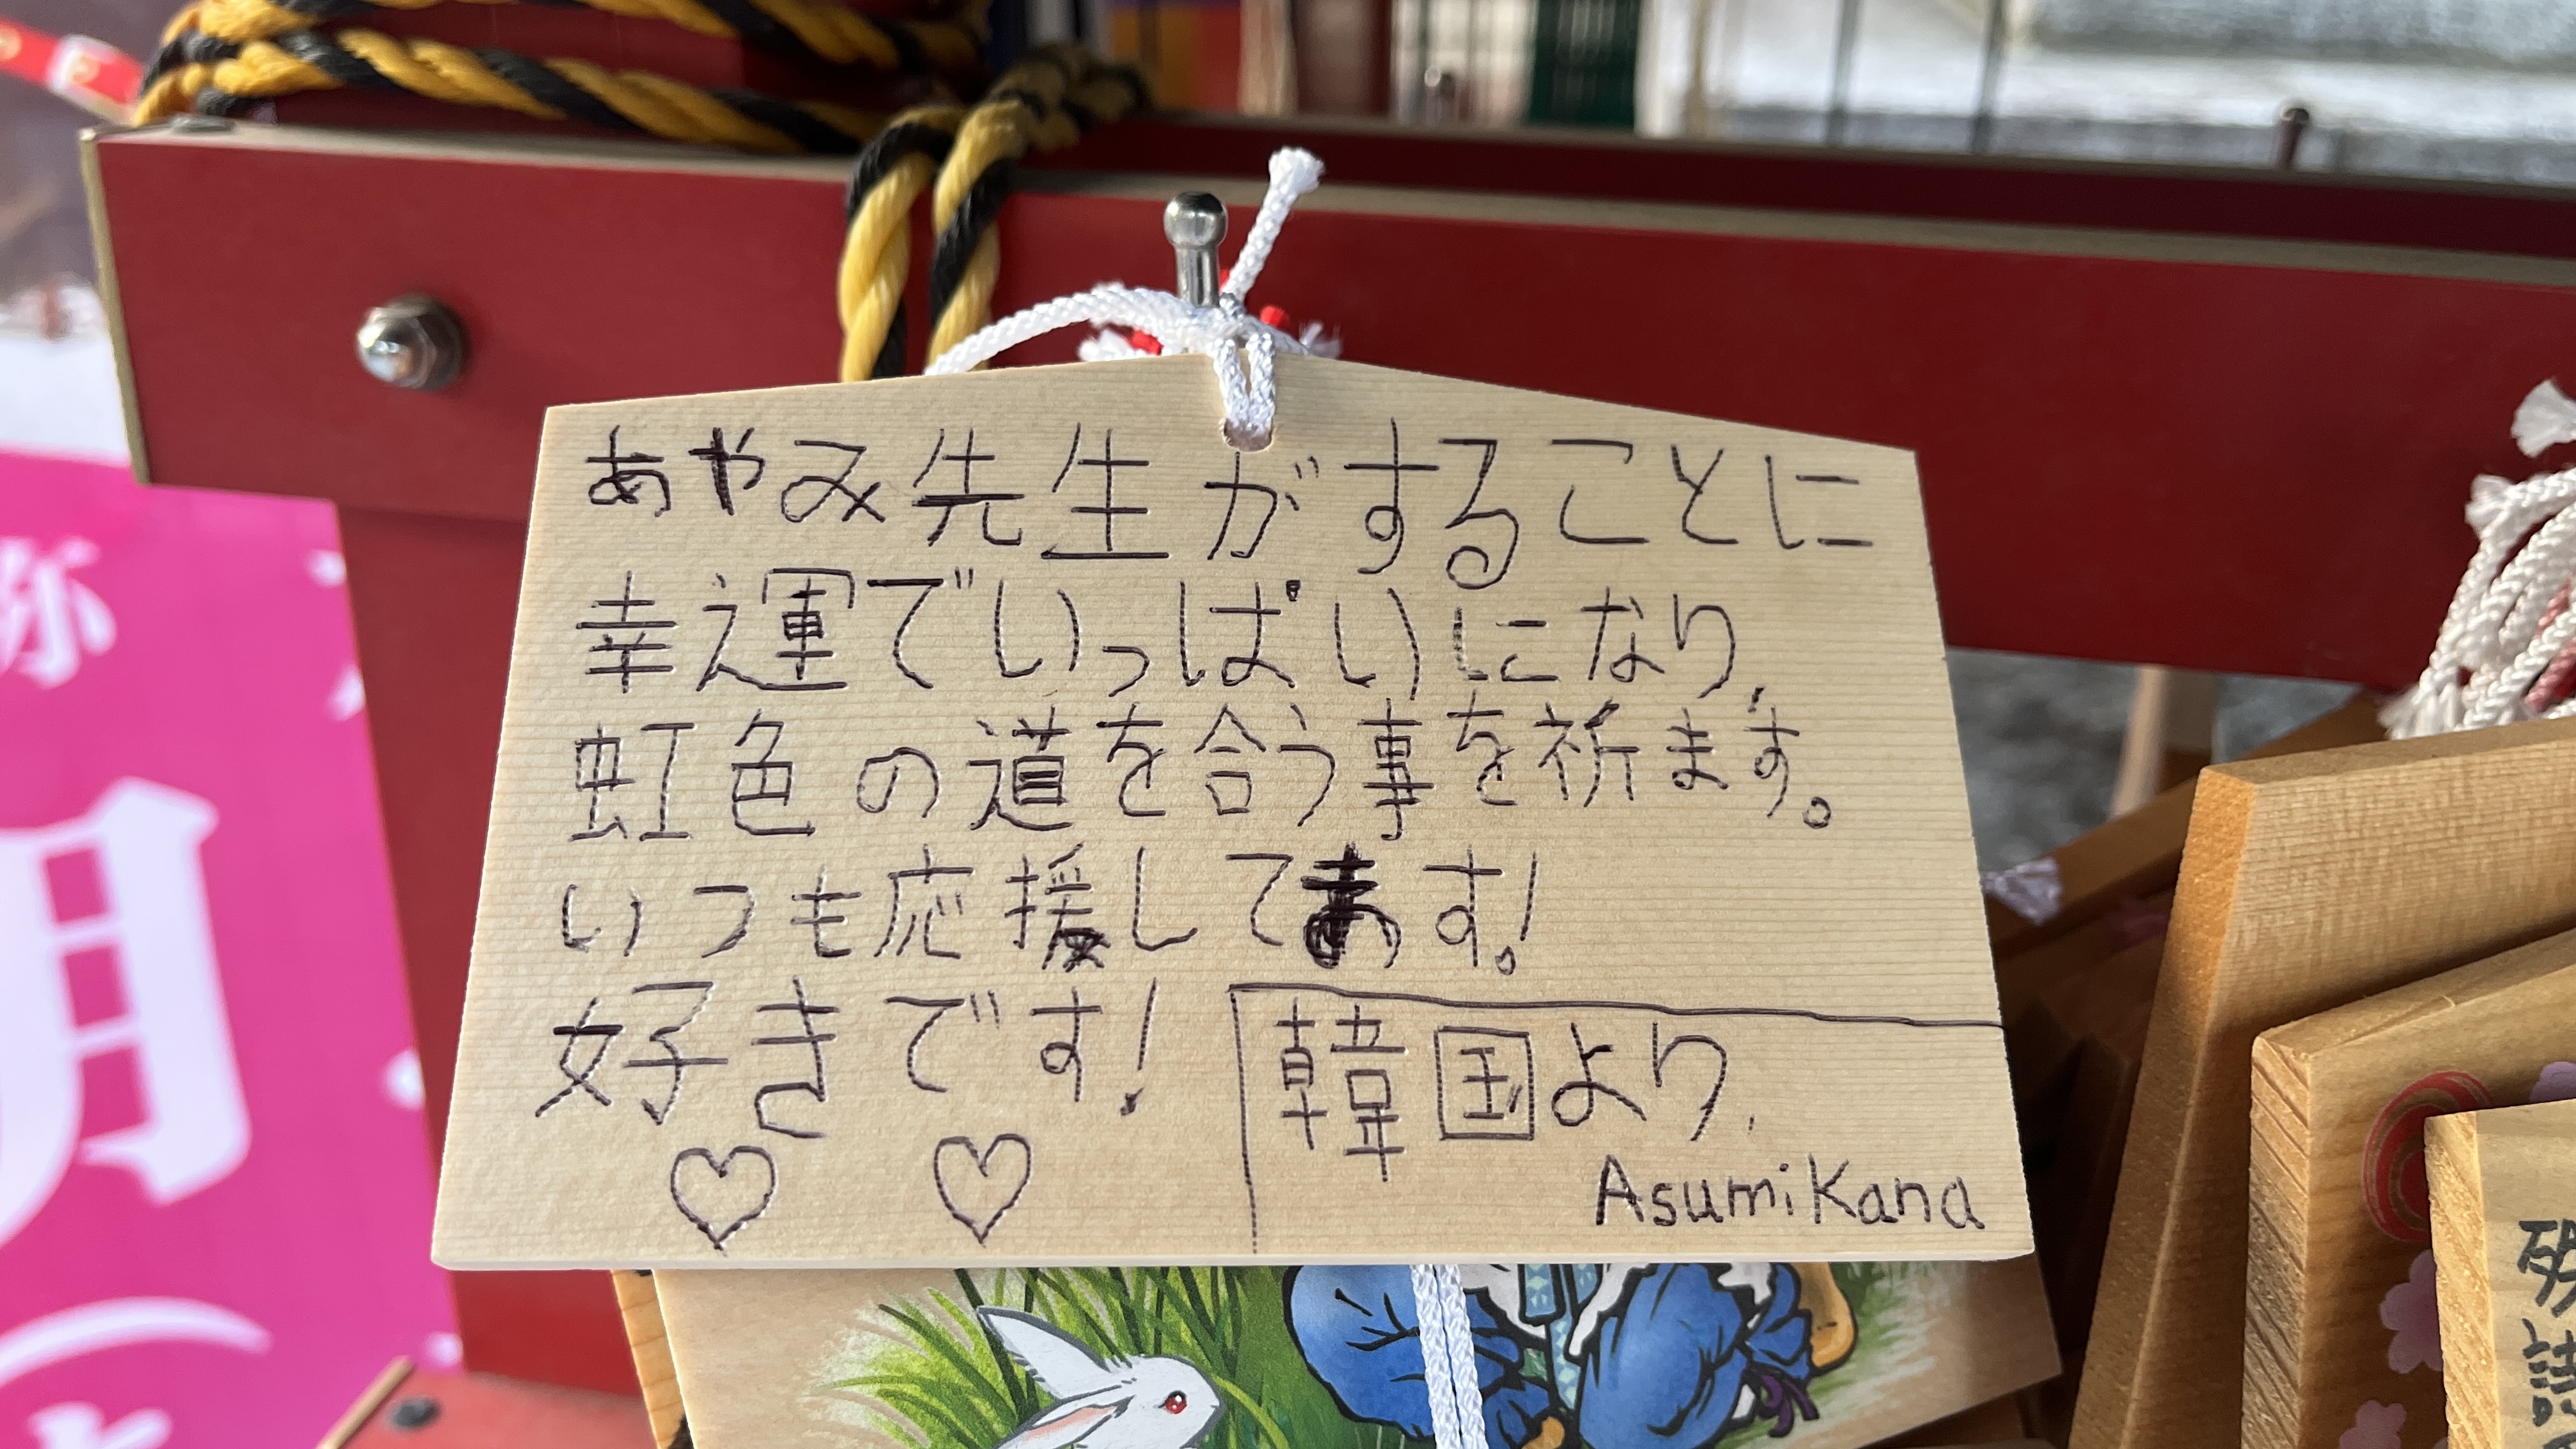 あやみ先生がすることに
幸運でいっぱいになり、
虹色の道を合う事を祈ます。
いつも応援してます!
好きです!
韓国より、
AsumiKana